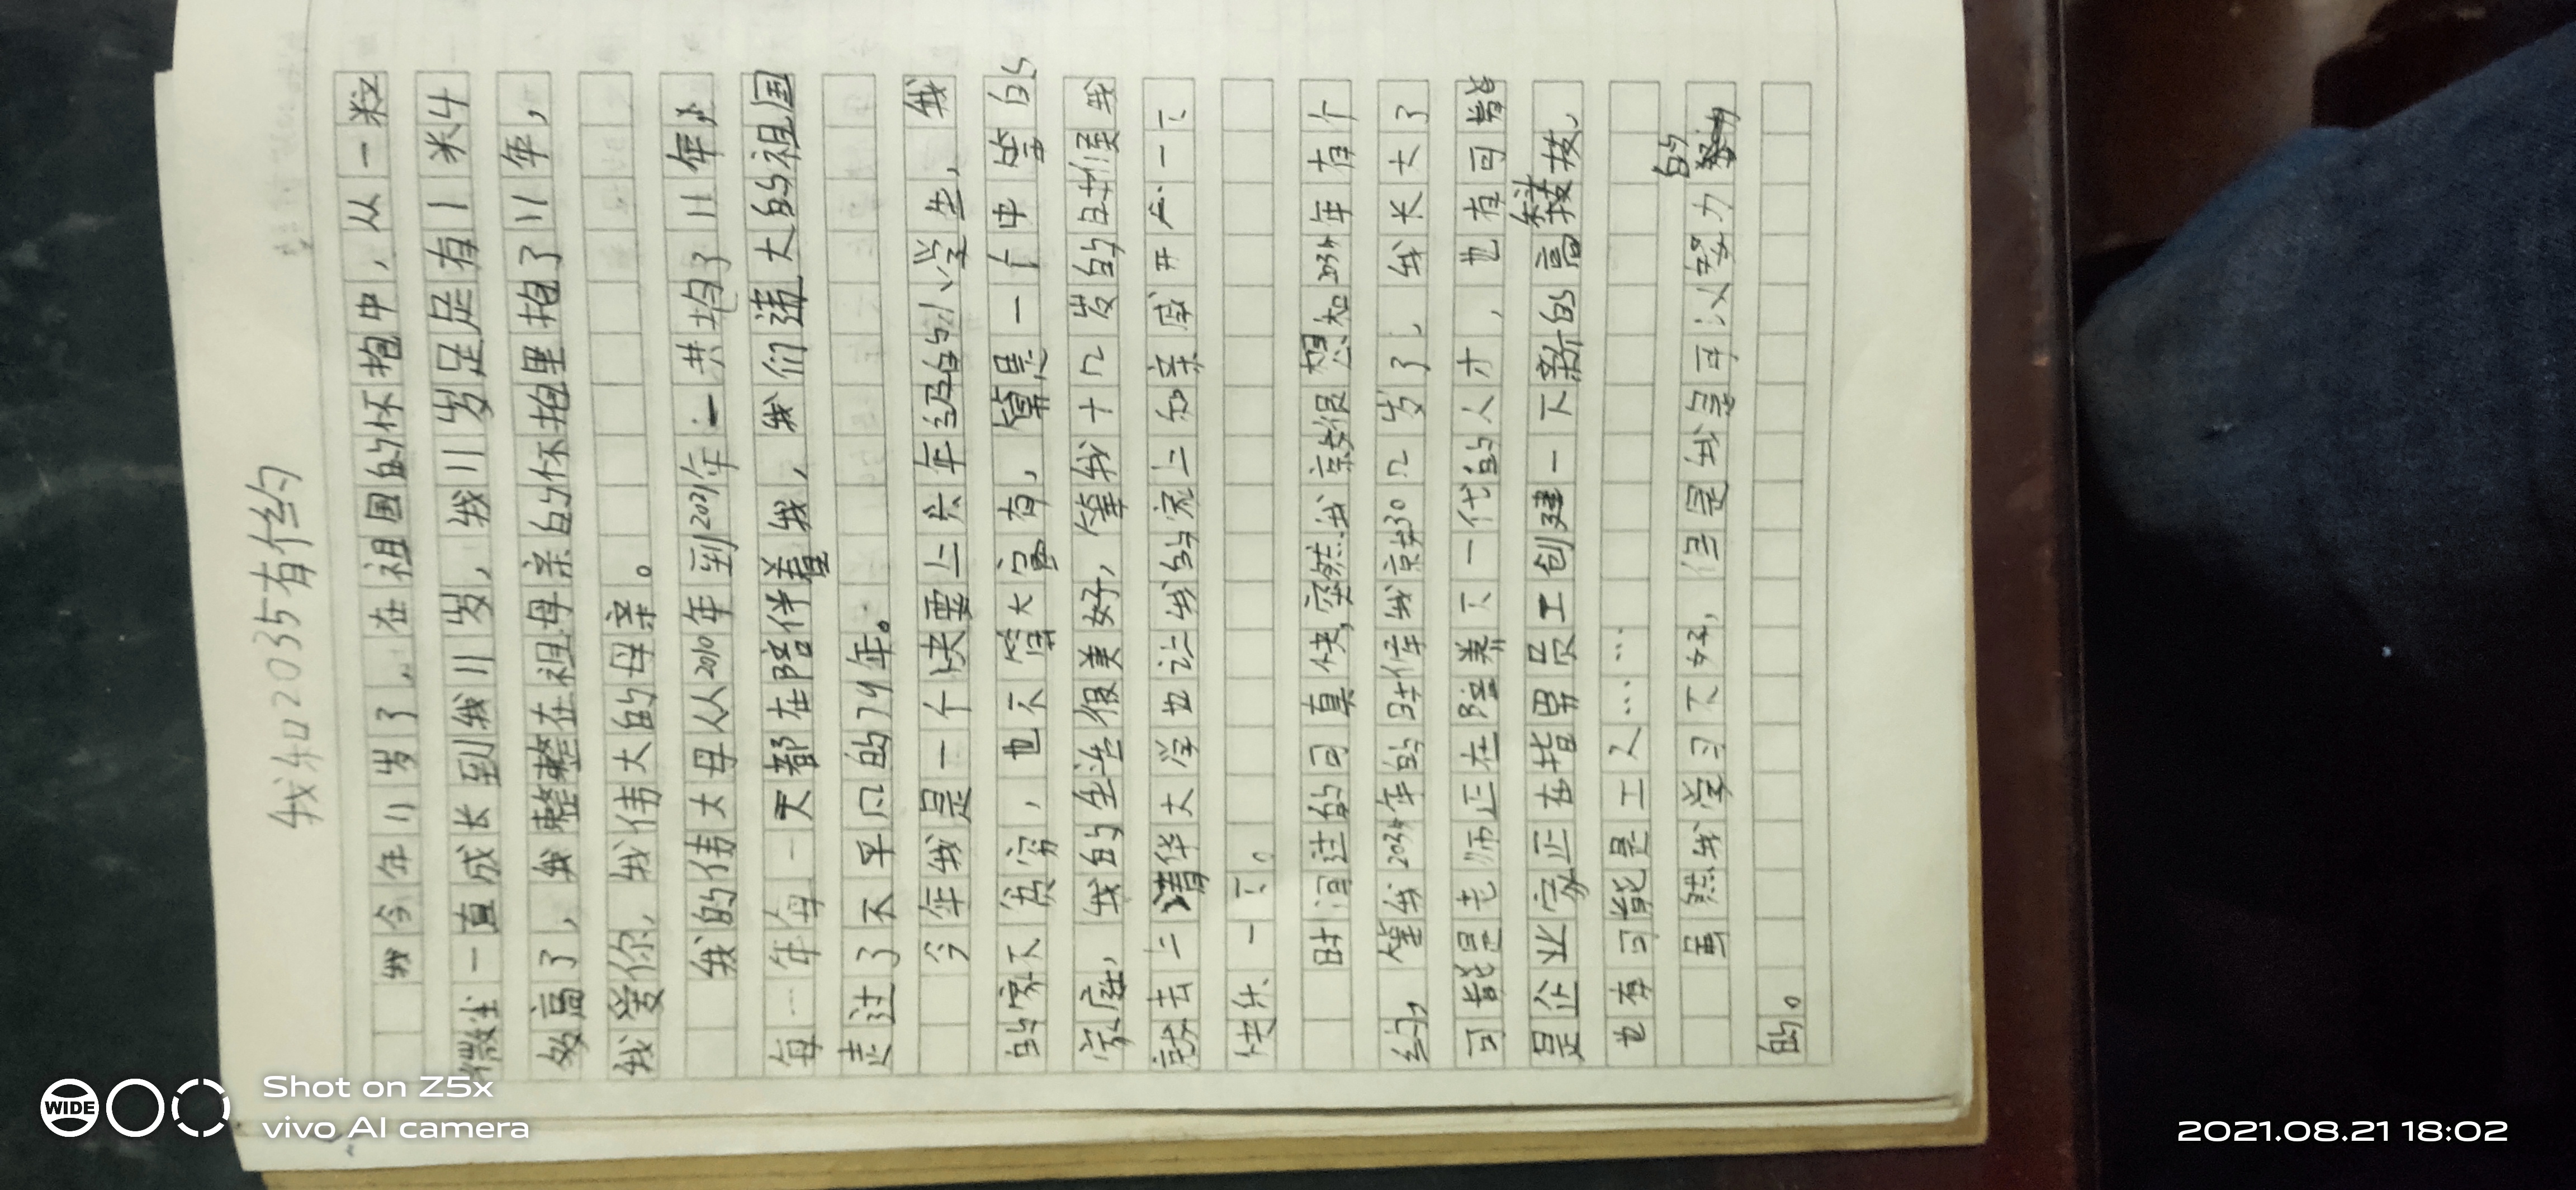 我和2035有个约
我今年11岁了。在祖国的怀抱中，从一粒
微尘一直成长到我11岁，我11岁足足有1米4
多高了，我整整在祖母亲的怀抱里抱了11年，
我爱你，我伟大的母亲。
我的伟大母从2010年到2021年一共抱了11年，
每一年每一天都在陪伴着我，我们伟大的祖国
走过了不平凡的74年。
今年我是一个快要上六年级的小学生，我
的家不贫穷，也不算大富有，算是一个中等的
家庭，我的生活很美好，等我十几岁的时候我
就去上清华大学也让我的家上和亲戚开心一下
快乐一下。
时间过的可真快，突然我京就很想和2034年有个
约，等我2034年的时候我京就30几岁了，我长大了
可能是老师正在陪养下一代的人才，也有可能
是企业家正在指男员工创建一下新的高科技、
也有可能是工人……
虽然我学习不好，但是我是可以努力的
的。
WIDE
Shot on Z5x
vivo AI camera
2021.08.21 18:02